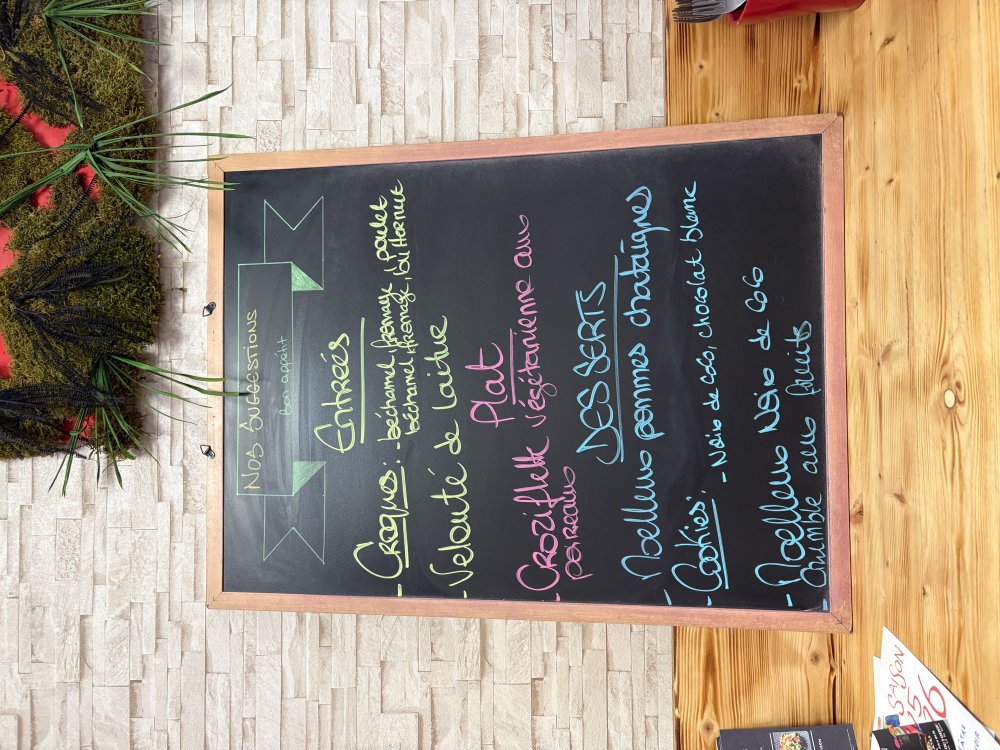 NOS SUGGESTIONS
Bon appétit
Entrés
- Croques : - béchamel, fromage, poulet
béchamel, fromage,
- Velouté de laitue
Plat
- Croziflette végétarienne aux
poireaux
DESSERTS
- Moelleux pommes chataignes
- Cookies :
- Noix de coco, chocolat blanc
- Moelleux Noix de CoCo
- Crumble aux fruits
SAISON